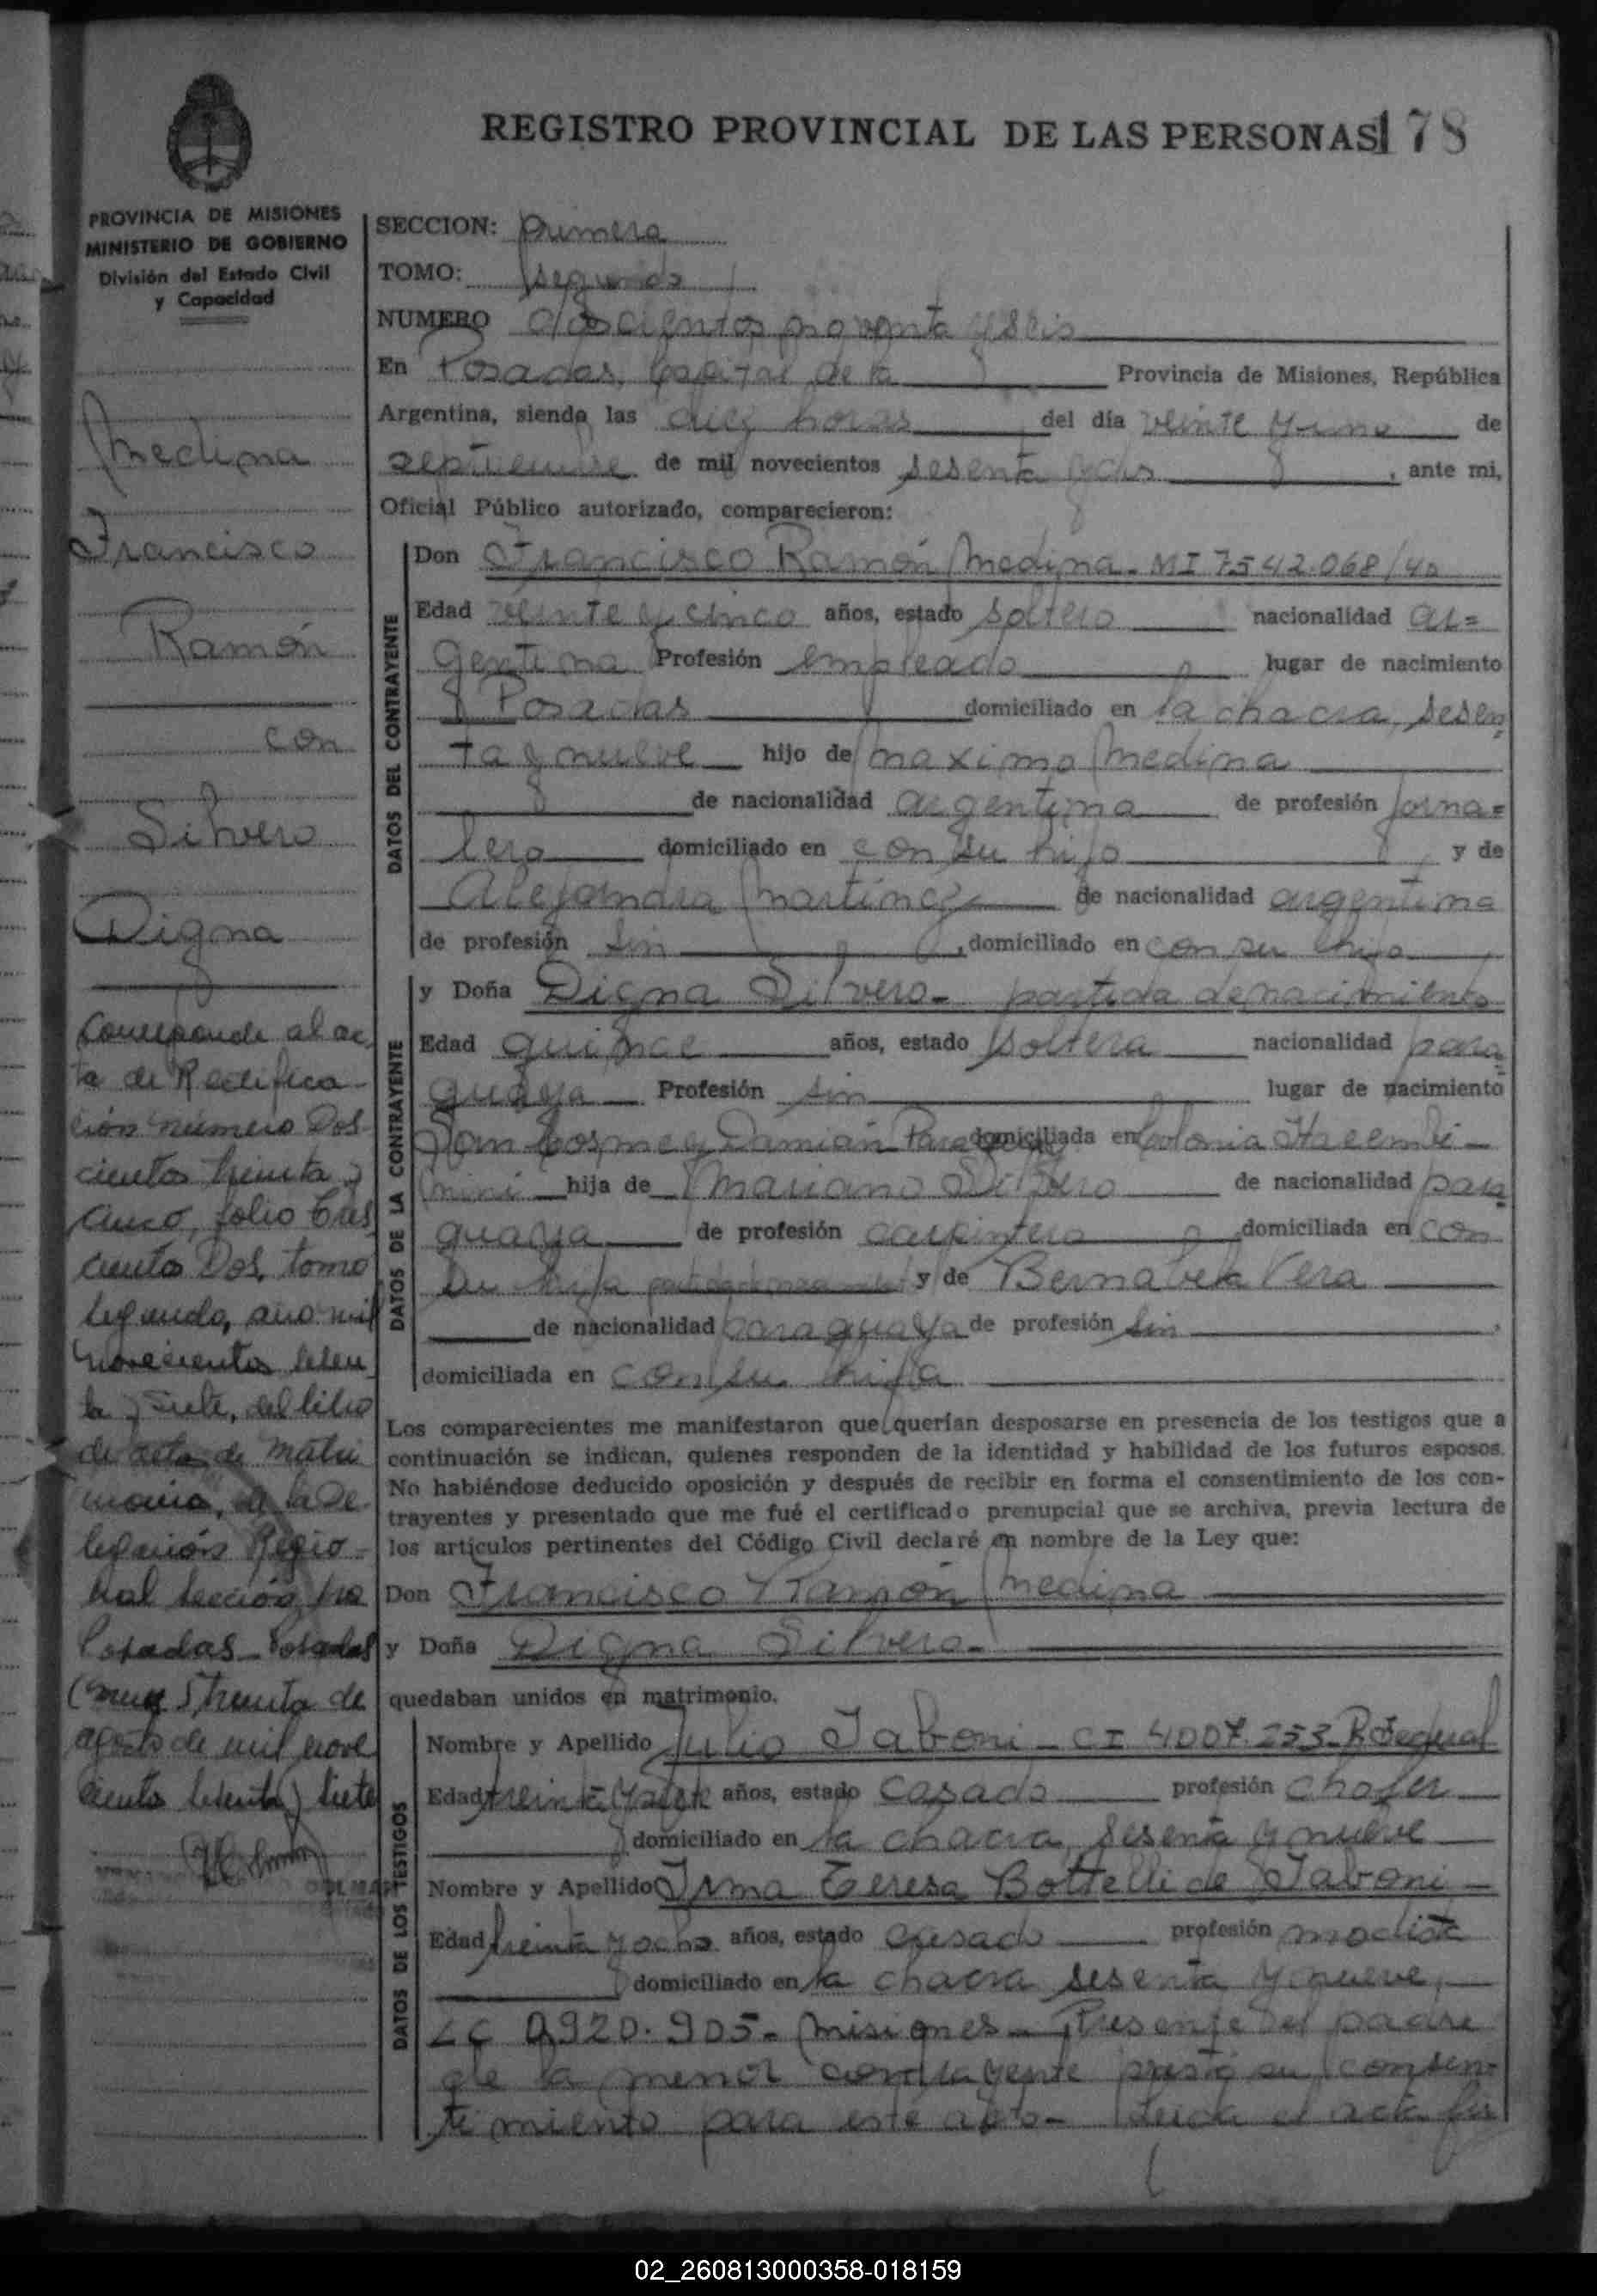 REGISTRO PROVINCIAL DE LAS PERSONAS 178
PROVINCIA DE MISIONES
MINISTERIO DE GOBIERNO
División del Estado Civil
y Capacidad
Medina
Francisco
Ramón
con
Silvero
Digna
Corresponde al ac
ta de Rectifica-
ción número Dos-
cientos treinta y
cinco, folio tres
cientos Dos, tomo
segundo, año mil
novecientos seten
ta y siete, del libro
de acta de matri
monio, de la De-
legación Regio-
nal sección 1ra
Posadas - Posadas
(Mnes) treinta de
agosto de mil nove
cientos setenta y siete
SECCION: primera
TOMO: segundo
NUMERO doscientos noventa y seis
En Posadas, Capital de la Provincia de Misiones, República
Argentina, siendo las diez horas del día veinte y uno de
septiembre de mil novecientos sesenta y dos, ante mi,
Oficial Público autorizado, comparecieron:
DATOS DEL CONTRAYENTE
Don Francisco Ramón Medina - MI 7542.068/40
Edad veinte y cinco años, estado soltero nacionalidad ar=
gentina Profesión empleado lugar de nacimiento
Posadas domiciliado en la chacra, sesen
ta y nueve hijo de Maximo Medina
de nacionalidad argentina de profesión jorna=
lero domiciliado en con su hijo y de
Alejandra Martínez de nacionalidad argentina
de profesión sin, domiciliado en con su hijo
DATOS DE LA CONTRAYENTE
y Doña Digna Silvero - partida de nacimiento
Edad quince años, estado soltera nacionalidad para
guaya Profesión sin lugar de nacimiento
San Cosme y Damián Paraguay domiciliada en Colonia Itaembé-
miní hija de Mariano Silvero de nacionalidad para
guaya de profesión carpintero domiciliada en con
su hija y de Bernabela Vera
de nacionalidad paraguaya de profesión sin,
domiciliada en con su hija
Los comparecientes me manifestaron que querían desposarse en presencia de los testigos que a
continuación se indican, quienes responden de la identidad y habilidad de los futuros esposos.
No habiéndose deducido oposición y después de recibir en forma el consentimiento de los con-
trayentes y presentado que me fué el certificado prenupcial que se archiva, previa lectura de
los artículos pertinentes del Código Civil declaré en nombre de la Ley que:
Don Francisco Ramón Medina
y Doña Digna Silvero-
quedaban unidos en matrimonio.
DATOS DE LOS TESTIGOS
Nombre y Apellido Julio Taboni - CI 4007.253-P. Federal
Edad treinta y siete años, estado casado profesión chofer
domiciliado en la chacra, sesenta y nueve
Nombre y Apellido Irma Teresa Bottelli de Taboni-
Edad treinta y ocho años, estado casado profesión modista
domiciliado en la chacra sesenta y nueve,
LC 0920.905- Misiones - Presente del padre
de la menor contrayente prestó su consen-
timiento para este acto- Leída el acta fir
02_260813000358-018159